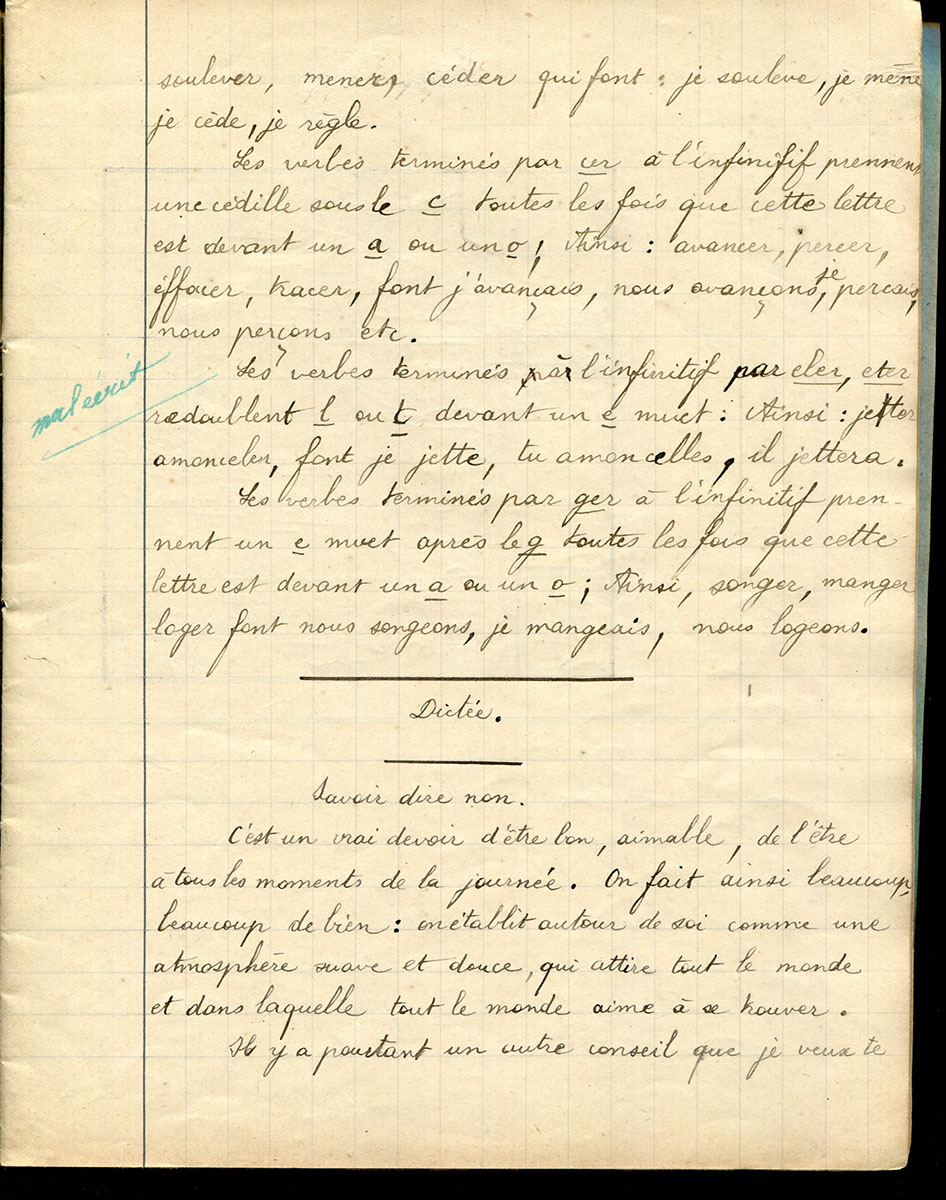 soulever, mener, céder qui font : je soulève, je mène
je cède, je règle.
Les verbes terminés par cer à l'infinifif prennent
une cédille sous le c toutes les fois que cette lettre
est devant un a ou un o ; Ainsi : avancer, percer,
éffacer, tracer, font j'avançais, nous avançons, je perçais,
nous perçons etc.
Les verbes terminés à l'infinitif par eler, eter
redoublent l ou t devant un e muet : Ainsi : jetter
amonceler, font je jette, tu amoncelles, il jettera.
mal écrit
Les verbes terminés par ger à l'infinitif pren-
nent un e muet après le g toutes les fois que cette
lettre est devant un a ou un o ; Ainsi, songer, manger
loger font nous songeons, je mangeais, nous logeons.
Dictée.
Savoir dire non.
C'est un vrai devoir d'être bon, aimable, de l'être
à tous les moments de la journée. On fait ainsi beaucoup,
beaucoup de bien : on établit autour de soi comme une
atmosphère suave et douce, qui attire tout le monde
et dans laquelle tout le monde aime à se trouver.
Il y a pourtant un autre conseil que je veux te